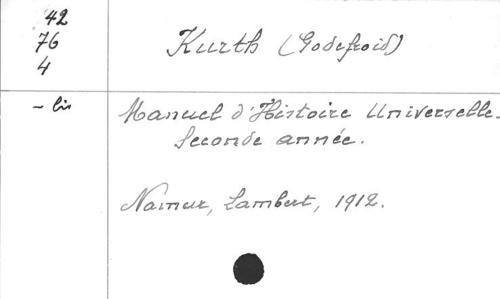 42
76
4
Kurth (Godefroid)
- bis
Manuel d'Histoire Universelle.
Seconde année.
Namur, Lambert, 1912.